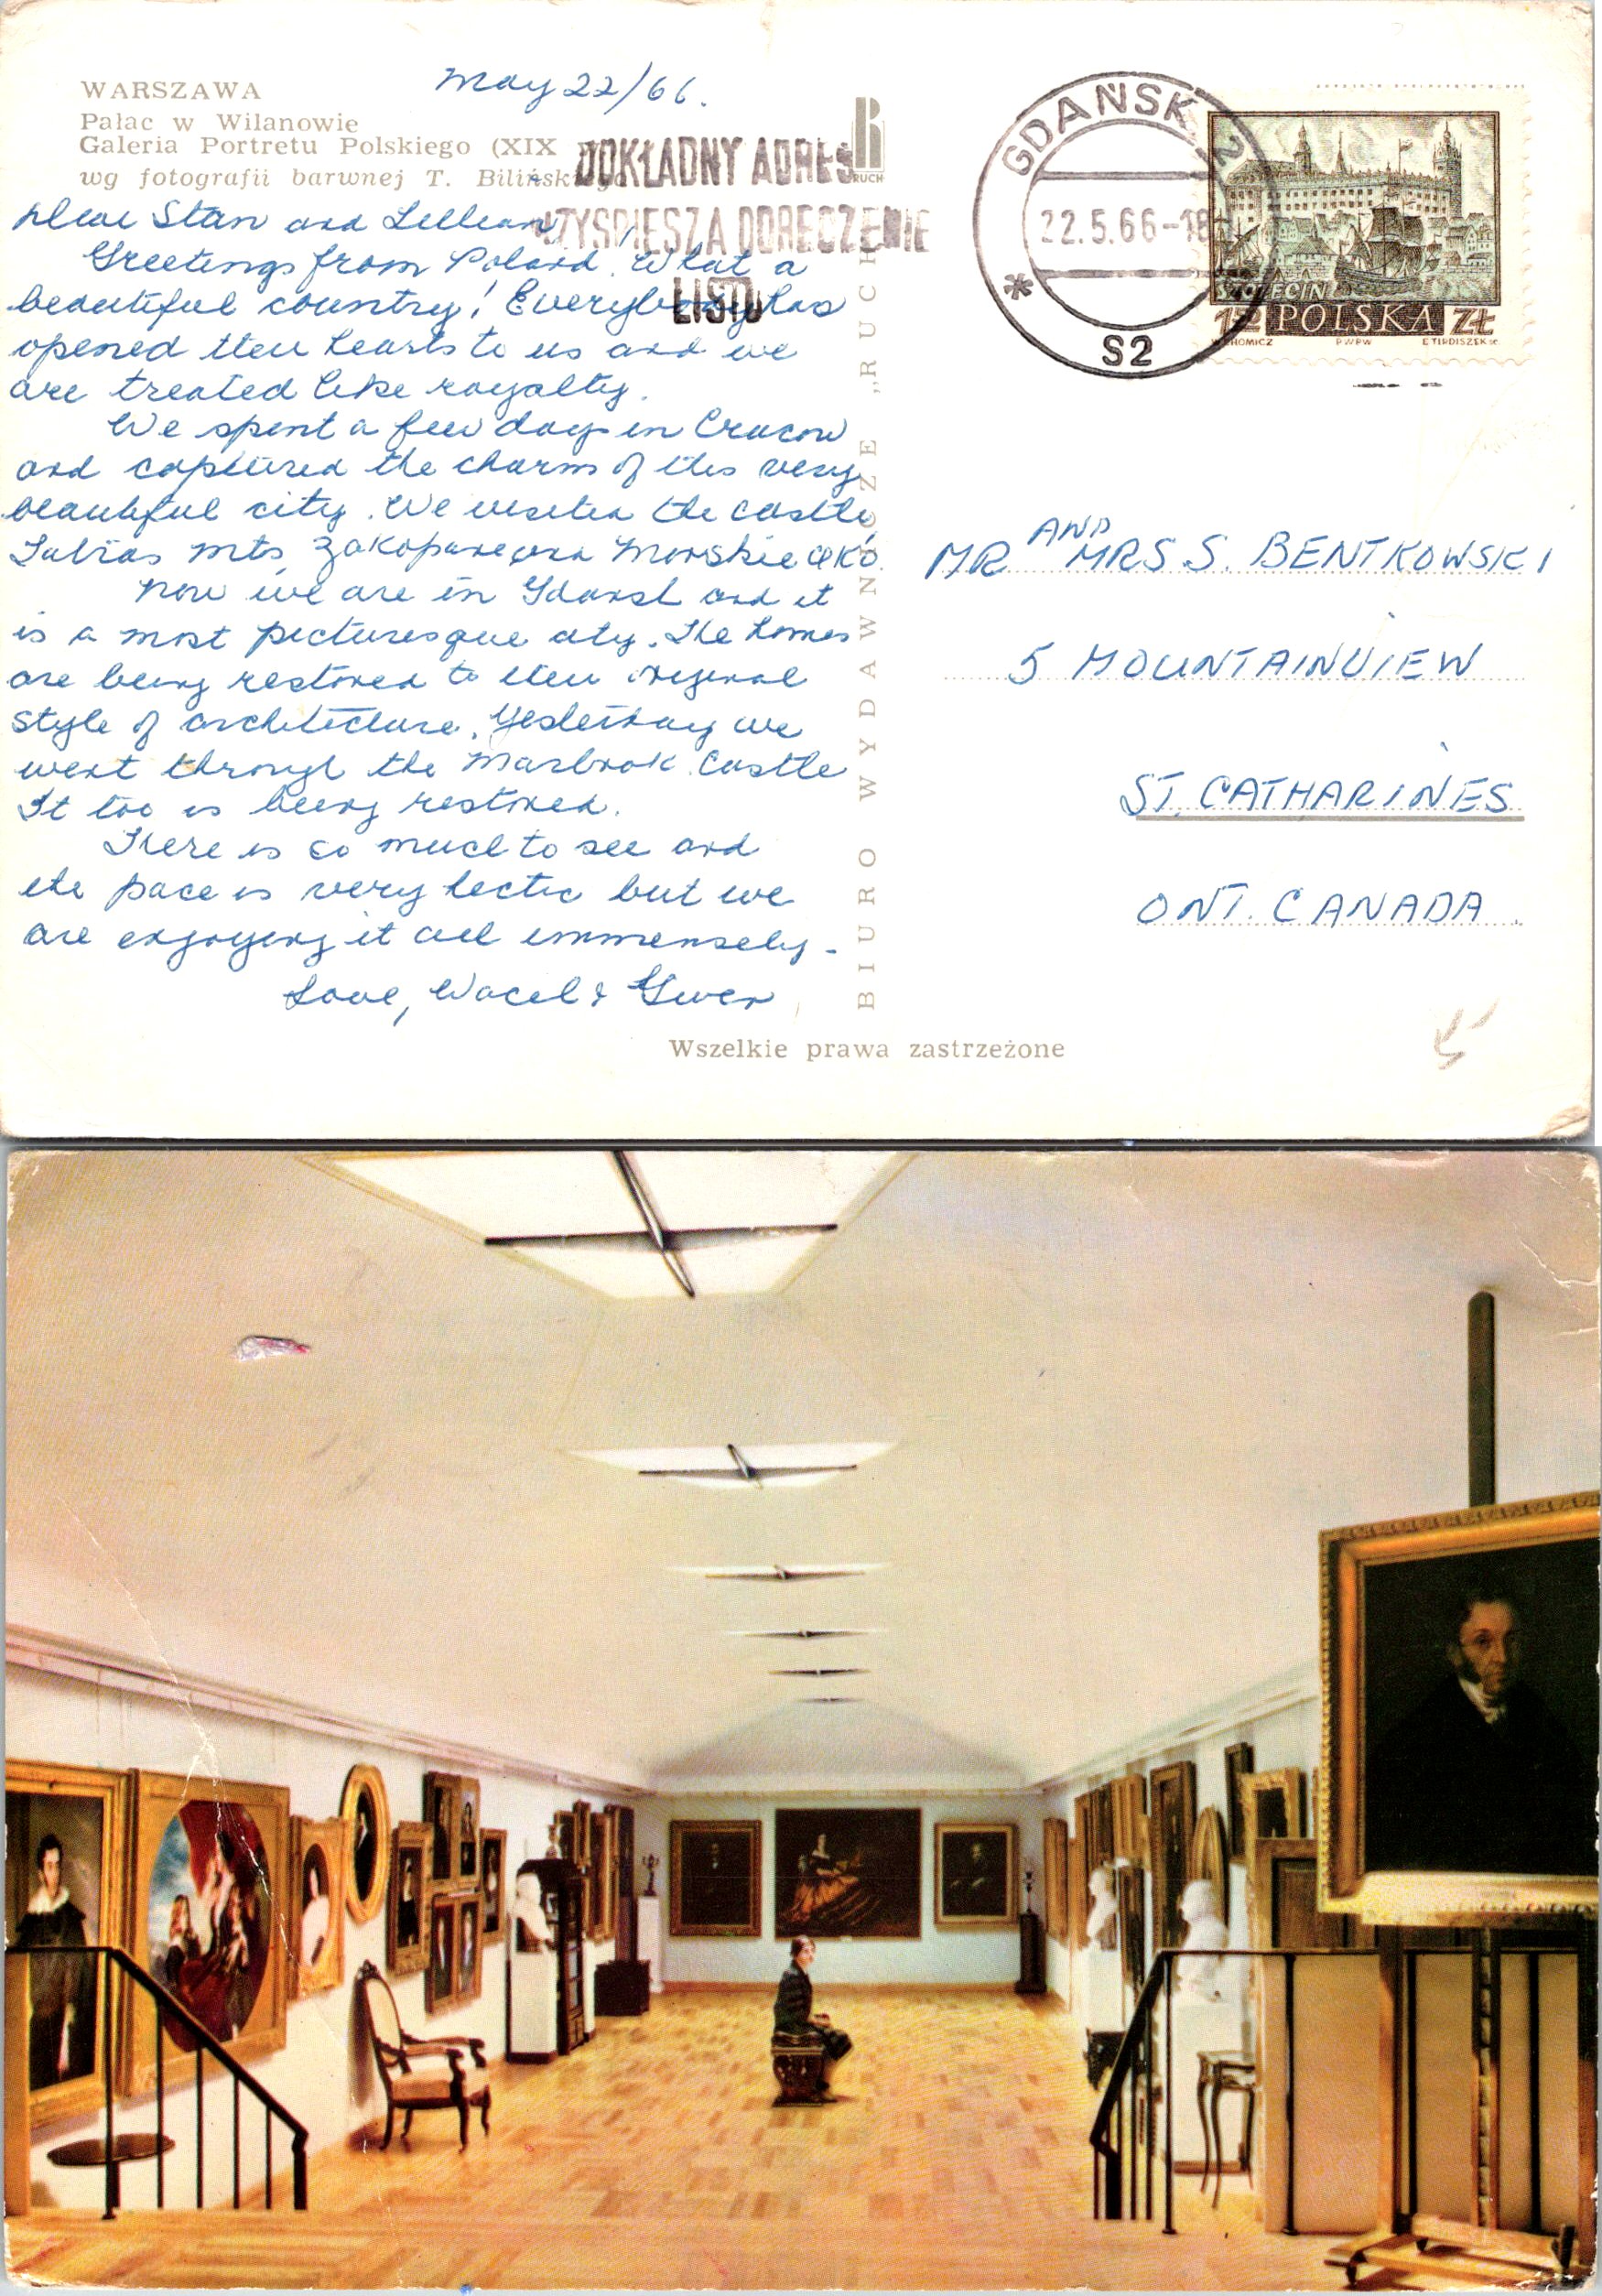 WARSZAWA
Pałac w Wilanowie
Galeria Portretu Polskiego (XIX
wg fotografii barwnej T. Bilińskiego
May 22/66.
RUCH
DOKŁADNY ADRES
PRZYSPIESZA DORĘCZENIE
LISTU
GDAŃSK 2
22.5.66-18
S2
SZCZECIN
150 POLSKA ZŁ
PWPW
E TIRDISZEK sc.
Dear Stan and Lillian,
Greetings from Poland. What a
beautiful country! Everybody has
opened their hearts to us and we
are treated like royalty.
We spent a few days in Cracow
and captured the charm of this very
beautiful city. We visited the castle
mts, Zakopane and Morskie Oko.
Now we are in Gdansk and it
is a most picturesque city. The homes
are being restored to their original
style of architecture. Yesterday we
went through the Marbrok Castle
It too is being restored.
There is so much to see and
the pace is very hectic but we
are enjoying it all immensely -
Love, Wacel & Gwen
BIURO WYDAWNICZE „RUCH"
MR AND MRS S. BENTKOWSKI
5 MOUNTAINVIEW
ST. CATHARINES
ONT. CANADA.
Wszelkie prawa zastrzeżone